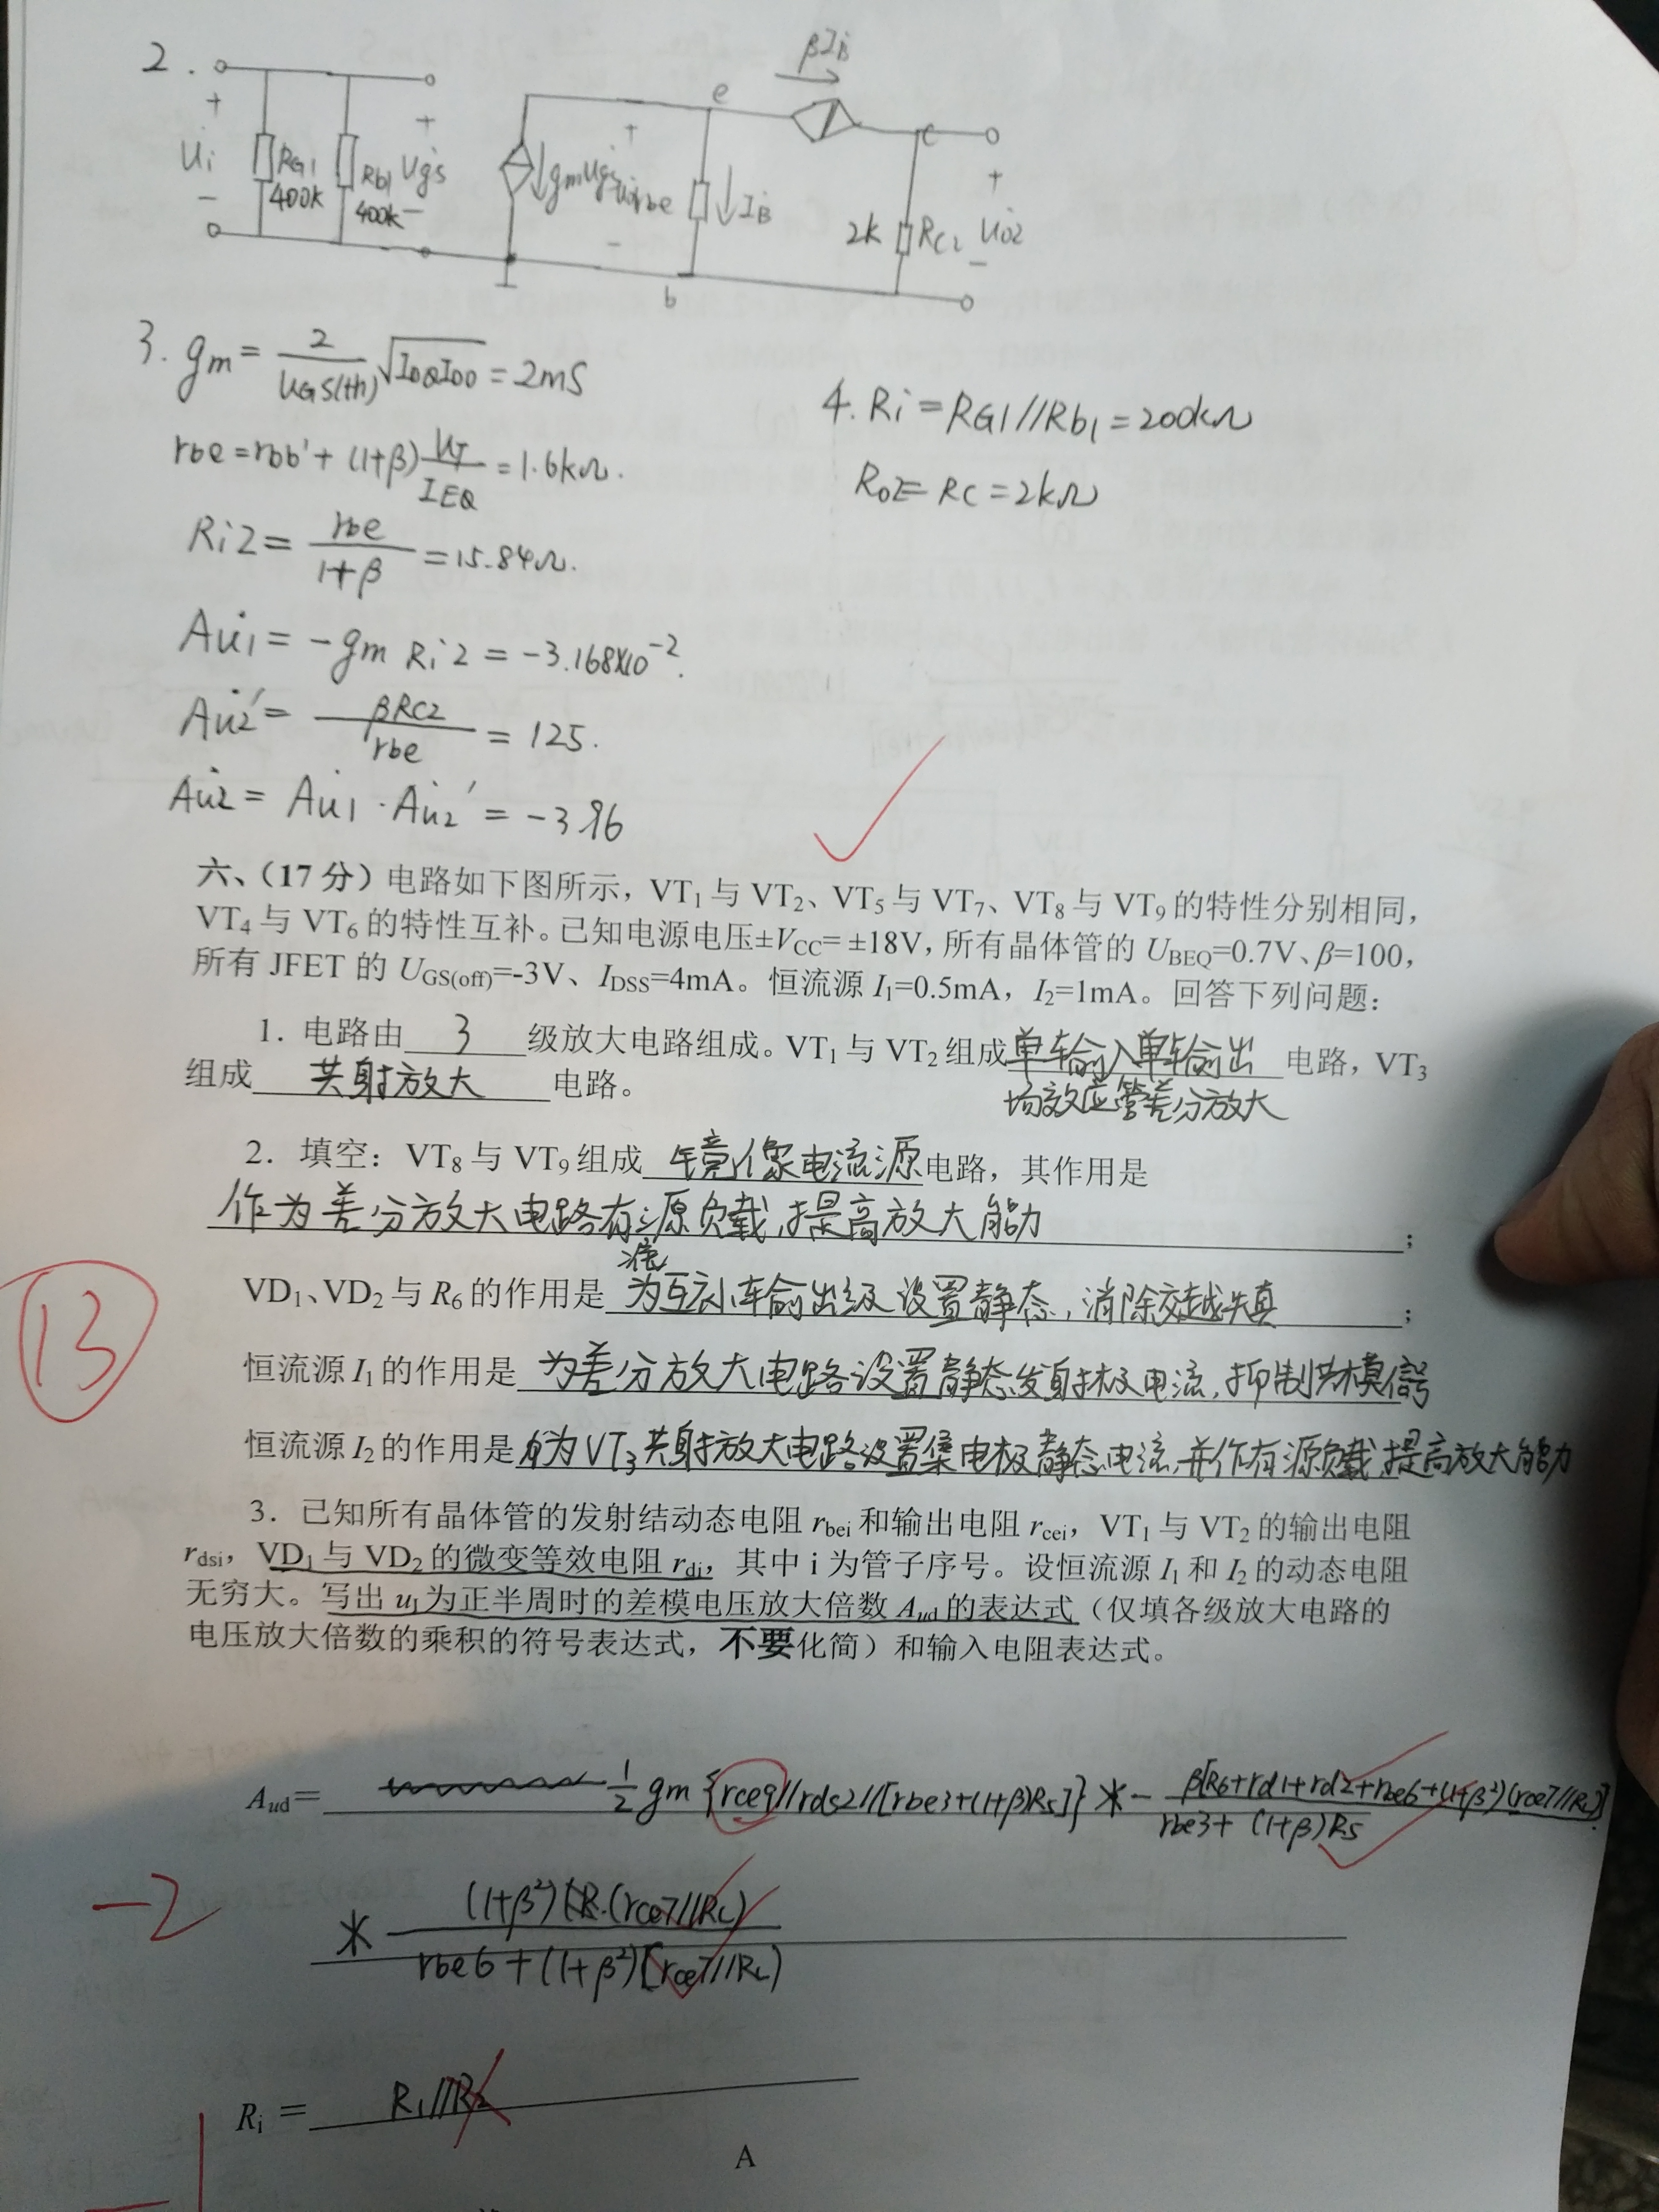 2.
βİB
e
c
+
+
+
+
Ui
RG1
Rb1
Ugs
gmUgs
rbe
IB
2k
RC2
Uo2
400k
400k
-
-
-
-
b
3. gm = 2/UGS(th) √(IDQIDO) = 2mS
4. Ri = RG1//Rb1 = 200kΩ
rbe = rbb' + (1+β) UT/IEQ = 1.6kΩ.
Ro2 = RC = 2kΩ
Ri2 = rbe/(1+β) = 15.84Ω.
Au1 = -gm Ri2 = -3.168×10⁻².
Au2' = βRC2/rbe = 125.
Au2 = Au1 · Au2' = -3.96
六、(17 分) 电路如下图所示，VT1 与 VT2、VT5 与 VT7、VT8 与 VT9 的特性分别相同，
VT4 与 VT6 的特性互补。已知电源电压±VCC= ±18V，所有晶体管的 UBEQ=0.7V、β=100，
所有 JFET 的 UGS(off)=-3V、IDSS=4mA。恒流源 I1=0.5mA，I2=1mA。回答下列问题：
1. 电路由 3 级放大电路组成。VT1 与 VT2 组成 单输入单输出 电路，VT3
场效应管差分放大
组成 共射放大 电路。
2. 填空：VT8 与 VT9 组成 镜像电流源 电路，其作用是
作为差分放大电路有源负载，提高放大能力 ；
VD1、VD2 与 R6 的作用是 为互补输出级设置静态，消除交越失真 ；
恒流源 I1 的作用是 为差分放大电路设置静态发射极电流，抑制共模信号
恒流源 I2 的作用是 为VT3共射放大电路设置集电极静态电流，并作有源负载，提高放大能力
3. 已知所有晶体管的发射结动态电阻 rbei 和输出电阻 rcei，VT1 与 VT2 的输出电阻
rdsi，VD1 与 VD2 的微变等效电阻 rdi，其中 i 为管子序号。设恒流源 I1 和 I2 的动态电阻
无穷大。写出 uI 为正半周时的差模电压放大倍数 Aud 的表达式（仅填各级放大电路的
电压放大倍数的乘积的符号表达式，不要化简）和输入电阻表达式。
13
Aud= 1/2 gm {rce9//rds2//[rbe3+(1+β)R5]} * - β[R6+rd1+rd2+rbe6+(1+β²)(rce7//RL)]/rbe3+(1+β)R5
-2
* (1+β²)(rce7//RL)/rbe6+(1+β²)[rce7//RL)
Ri = R1//R2
A